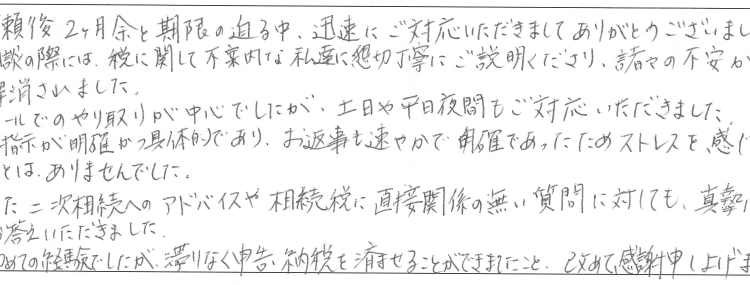 頼後2ヶ月余と期限の迫る中、迅速にご対応いただきましてありがとうございまし
談の際には、税に関して不案内な私達に懇切丁寧にご説明くださり、諸々の不安が
解消されました。
ールでのやり取りが中心でしたが、土日や平日夜間もご対応いただきました。
指示が明確かつ具体的であり、お返事も速やかで明確であったためストレスを感じ
とは、ありませんでした。
た二次相続へのアドバイスや相続税に直接関係の無い質問に対しても、真摯に
お答えいただきました。
じめての経験でしたが、滞りなく申告、納税を済ませることができましたこと、改めて感謝申し上げま